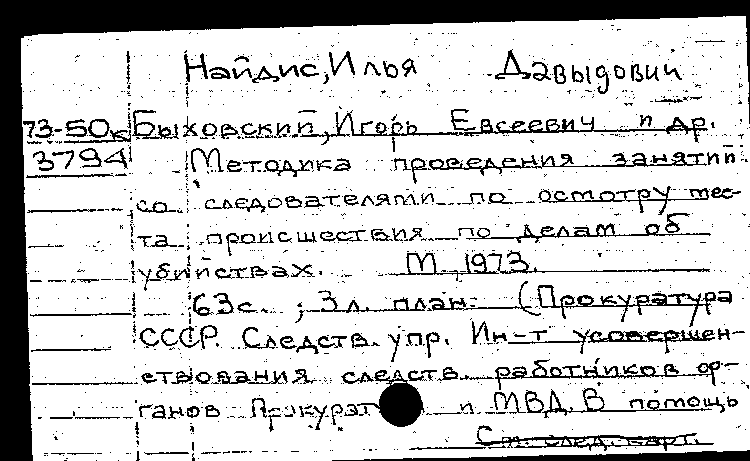 Найдис, Илья Давыдович
73-50к Быховский, Игорь Евсеевич и др.
3794 Методика проведения занятий
со следователями по осмотру мес-
та происшествия по делам об
убийствах. М, 1973.
63с. ; 3л. план. (Прокуратура
СССР. Следств. упр. Ин-т усовершен-
ствования следств. работников ор-
ганов Прокурат и МВД. В помощь
См. след. карт.